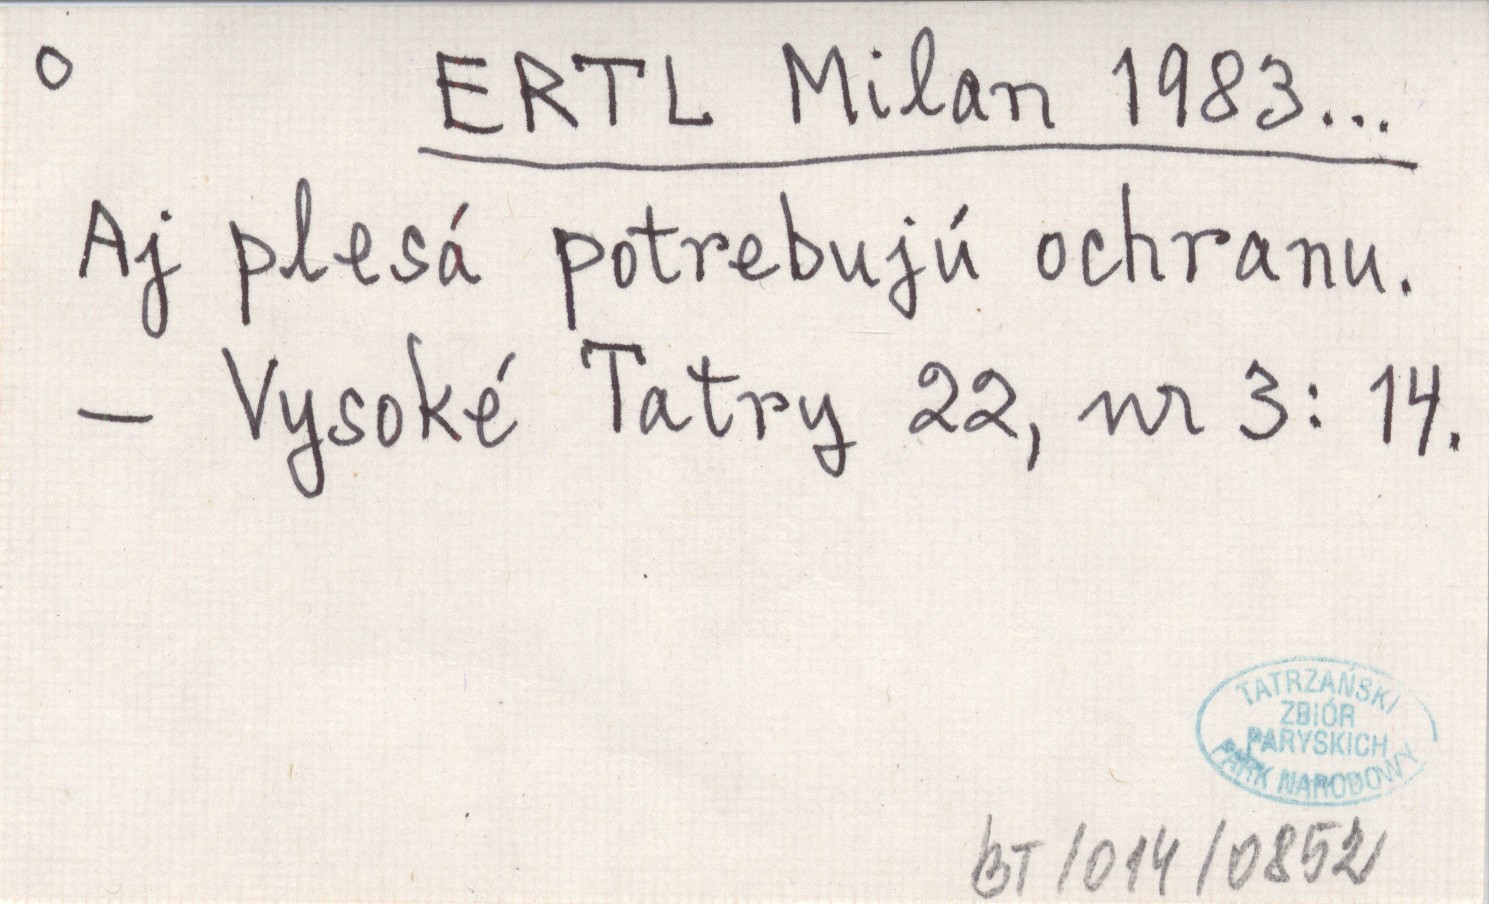 o
ERTL Milan 1983...
Aj plesá potrebujú ochranu.
— Vysoké Tatry 22, nr 3: 14.
TATRZAŃSKI
ZBIÓR
PARYSKICH
PARK NARODOWY
BT/014/0852